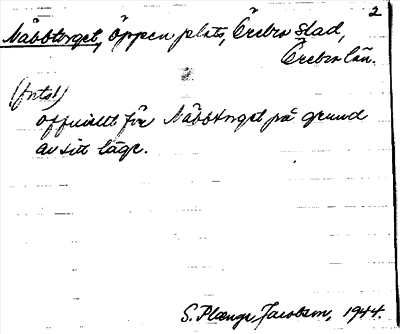 2
Näbbtorget, öppen plats, Örebro stad,
Örebro län.
(forts.)
officiellt för Näbbtorget på grund
av sitt läge.
S. Plænge Jacobson, 1944.